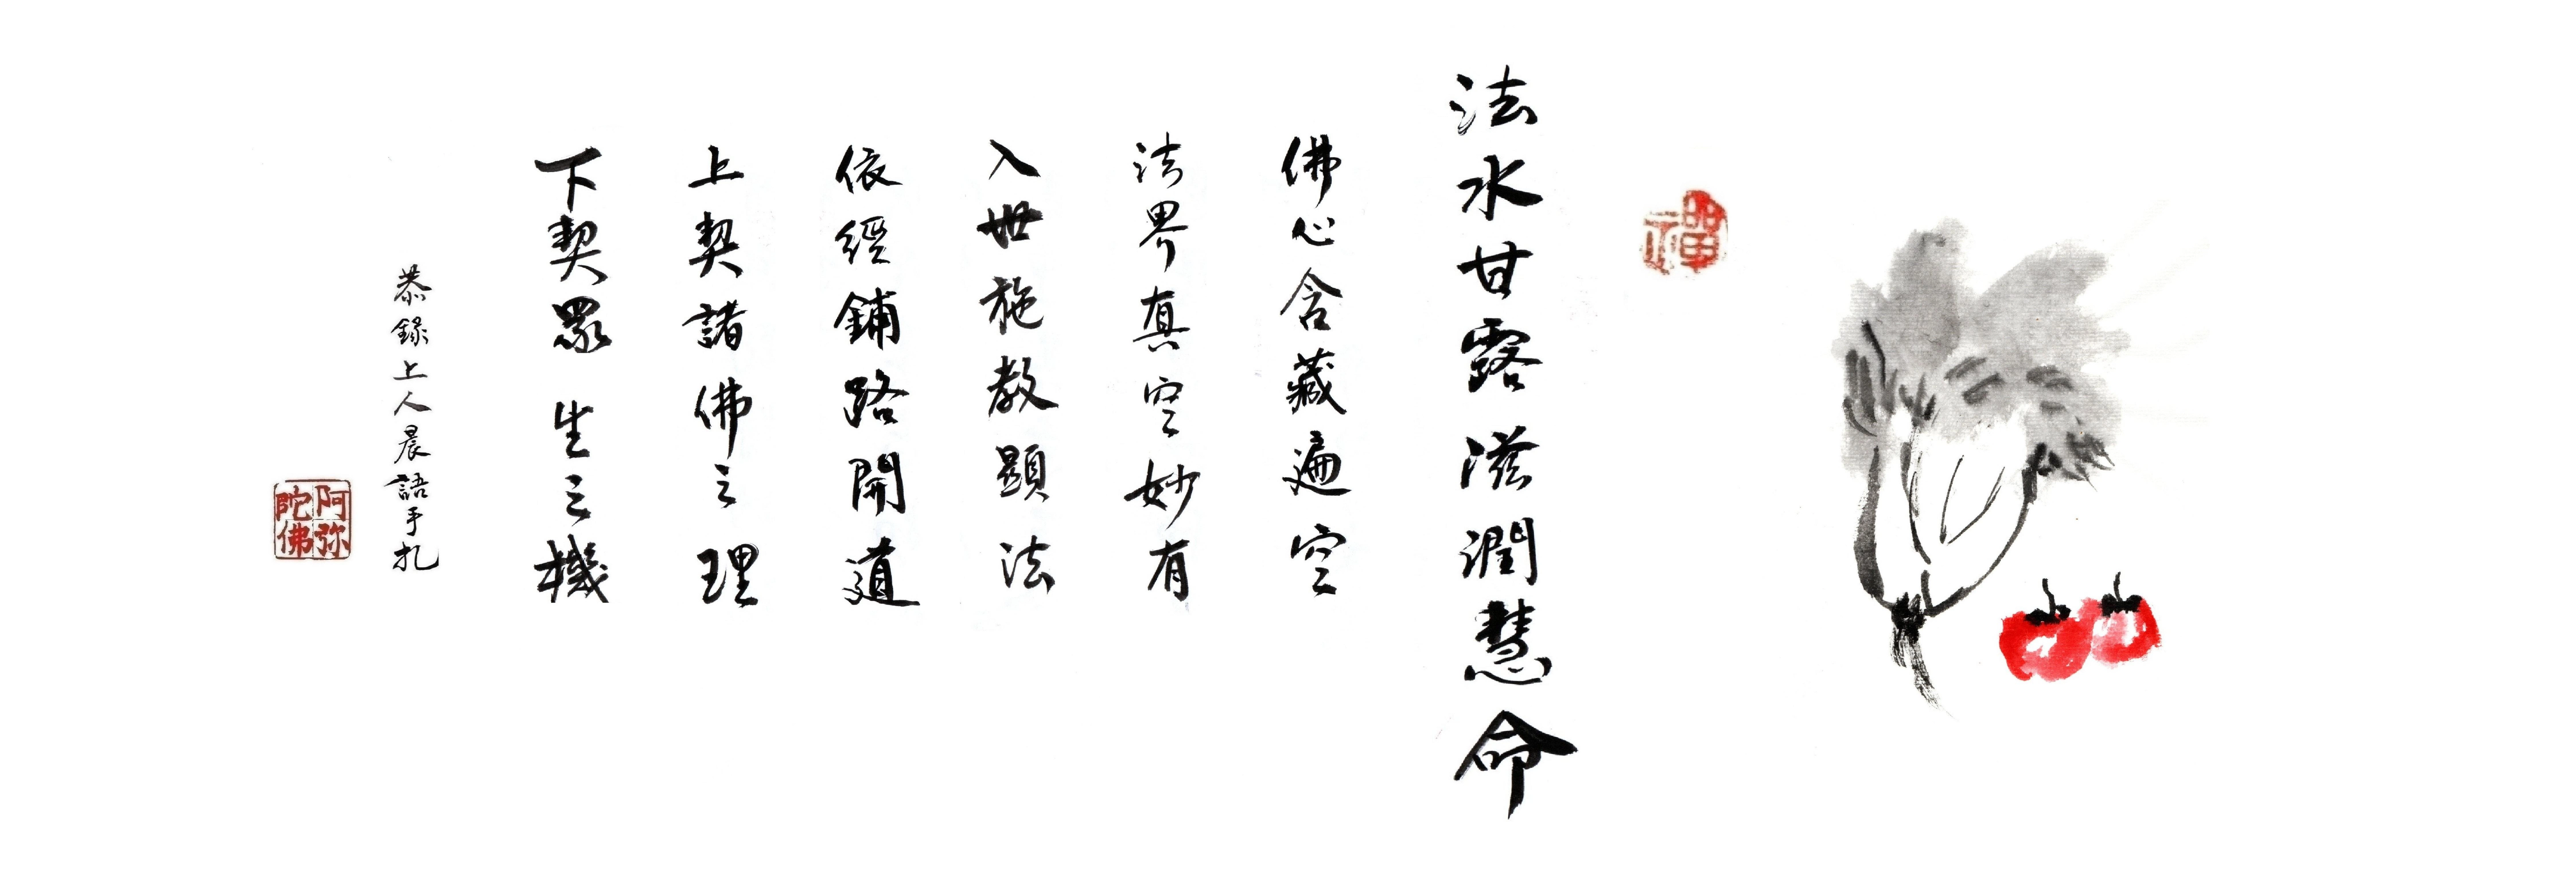 禪
法水甘露滋潤慧命
佛心含藏遍空
法界真空妙有
入世施教顯法
依經鋪路開道
上契諸佛之理
下契眾生之機
恭錄上人晨語手札
阿弥
陀佛